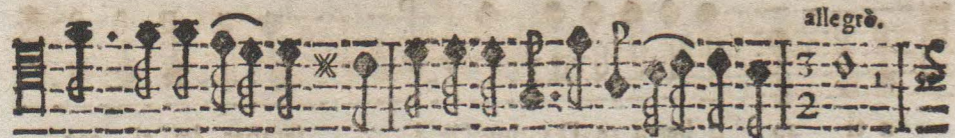 allegrò.
3
2